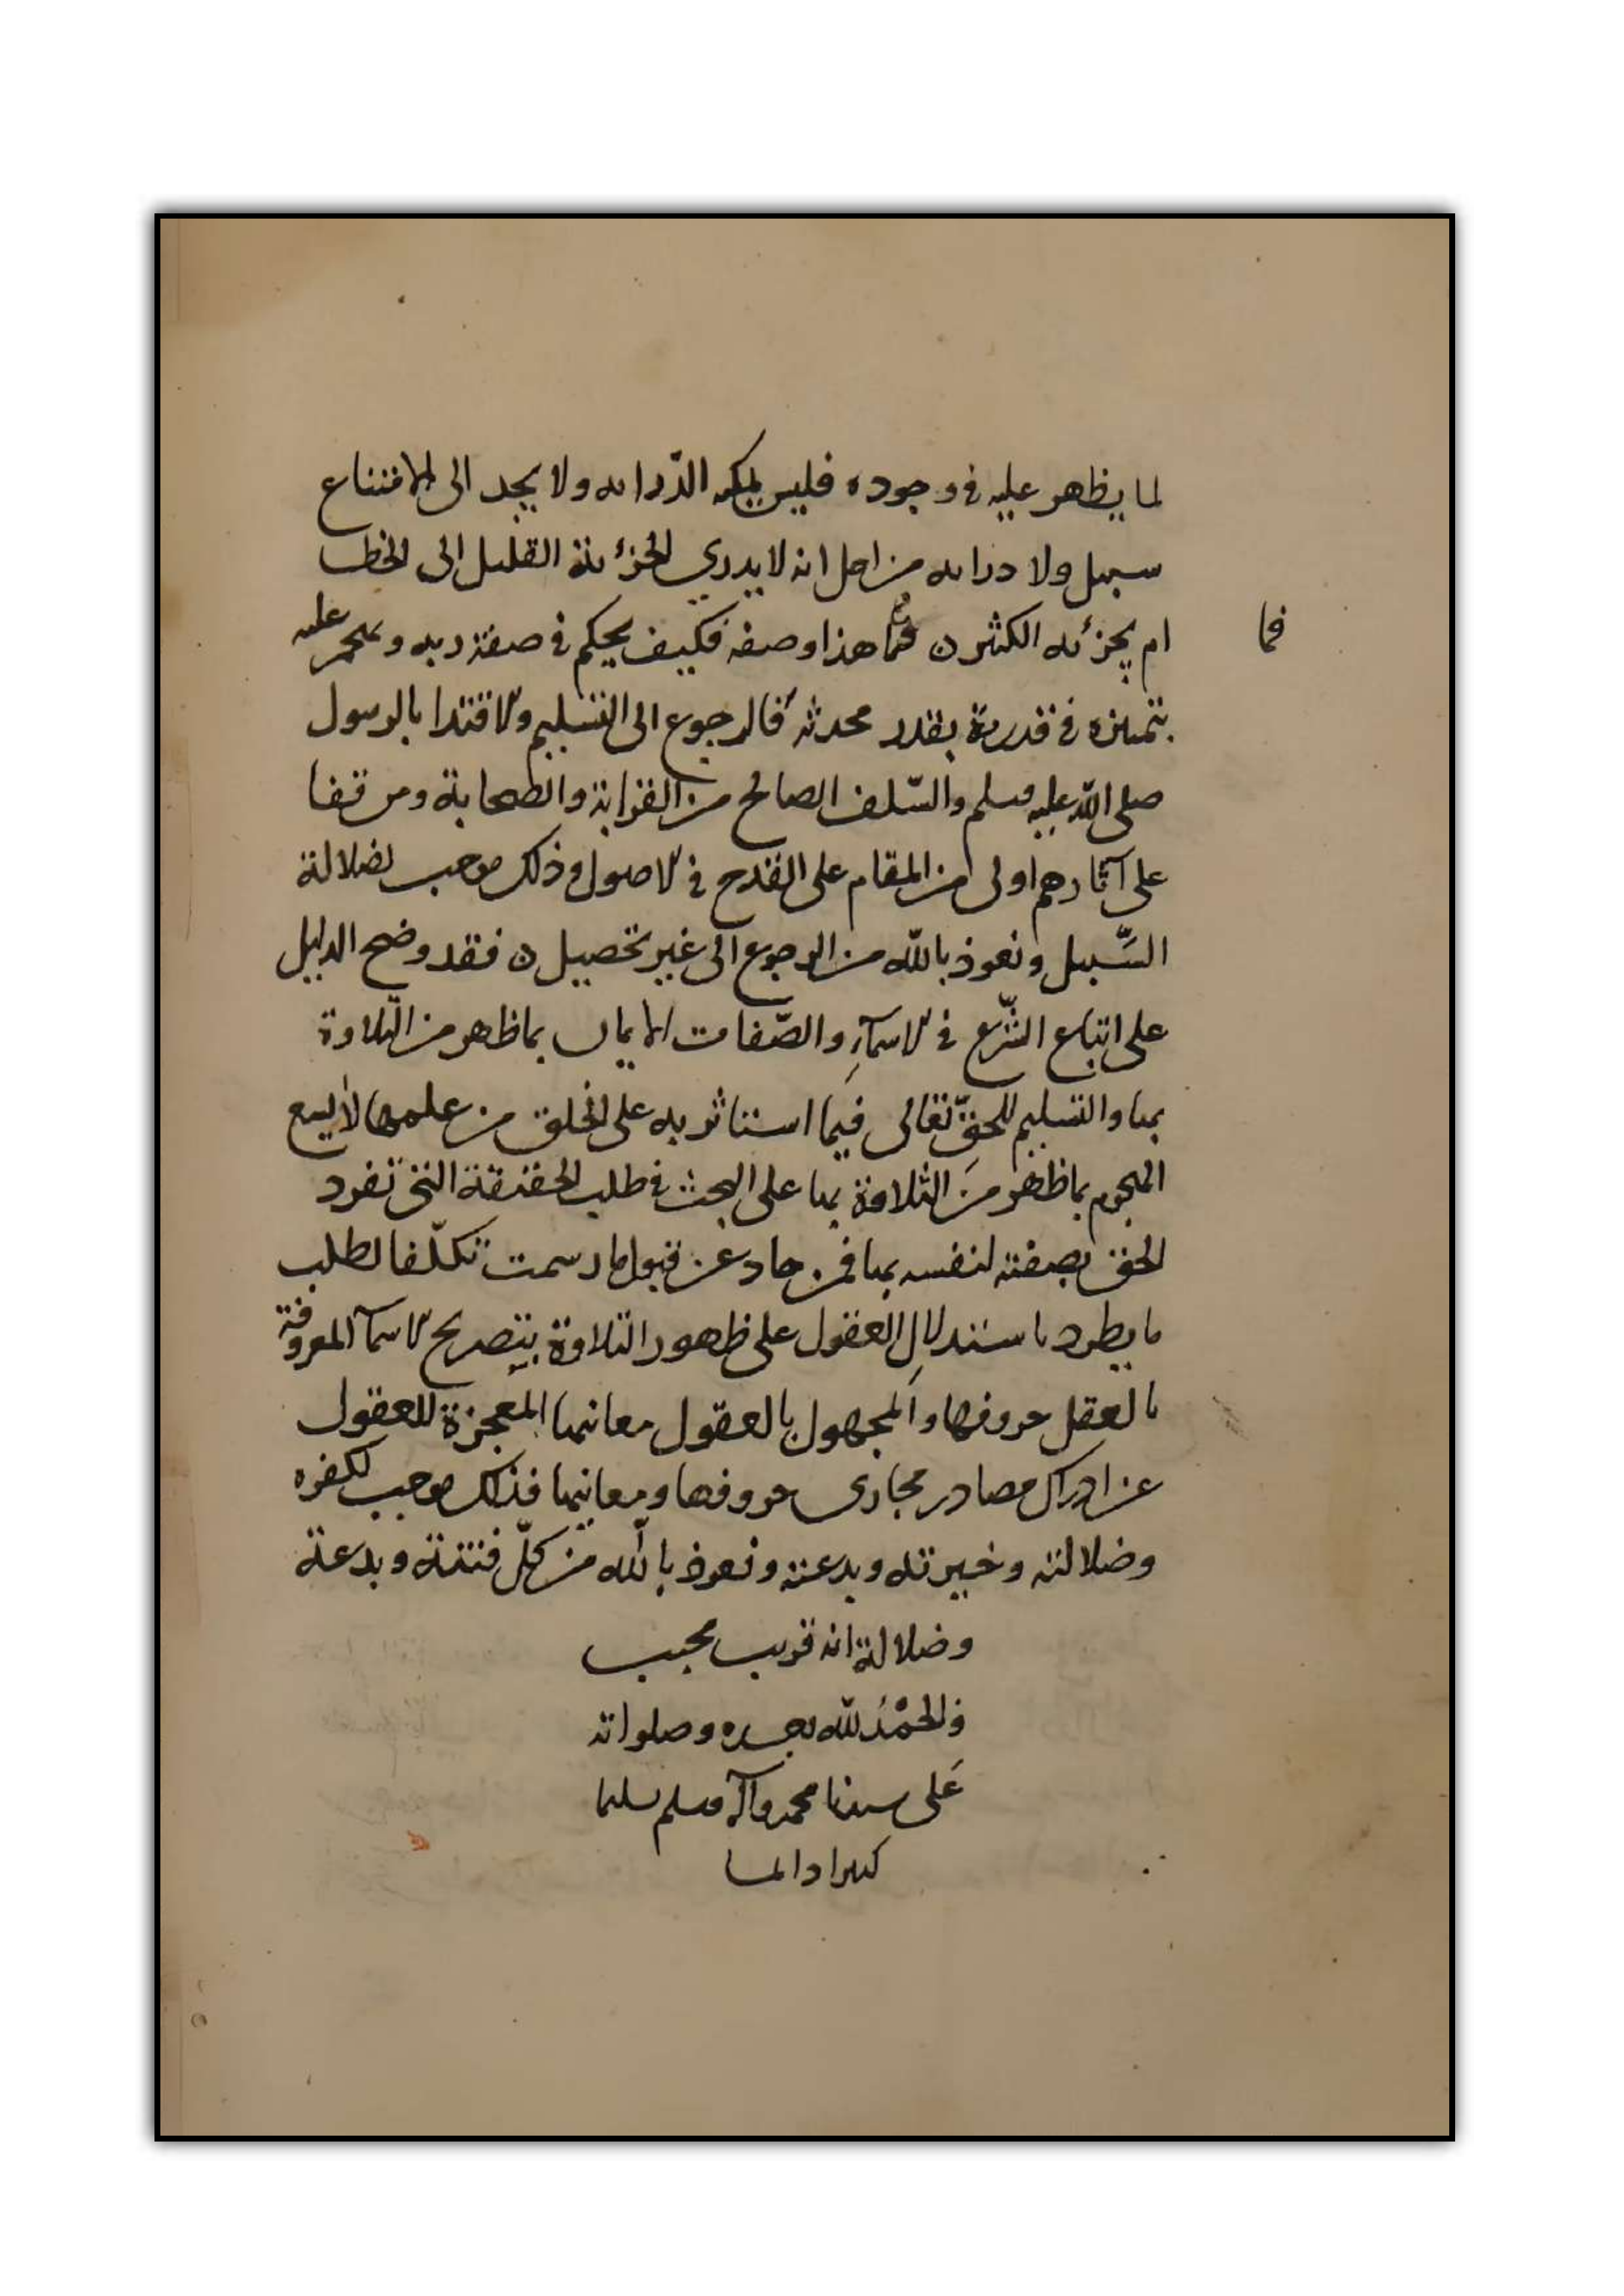 لما يظهر عليه في وجوده فليس يمكنه الدراية ولا يجد الى الامتناع
سبيل ولا دراية من اجل انه لا يدري الجزئة القليل الى الخطا
ام يجزئه الكثير فما هذا وصفه فكيف يحكم في صفة ربه عليه
فما
بتميزه في قدرية بقدر محدثه فالرجوع الى التسليم والاقتدا بالرسول
صلى الله عليه وسلم والسلف الصالح من القرابة والصحابة ومن قفا
على آثارهم اولى من المقام على القدح في الاصول وذلك موجب لضلالة
السبيل ونعوذ بالله من الرجوع الى غير تحصيل فقد وضح الدليل
على اتباع الشرع في الاسمآء والصفات الايمان بما ظهر من التلاوة
بها والتسليم للحق تعالى فيما استاثر به على الخلق من علمها لا يسع
الهجوم بما ظهر من التلاوة بها على البحث في طلب الحقيقة التي تفرد
الحق بصفته لنفسه بها فمن حاد عن قبول ما رسمت تكلفا لطلب
ما يطرد باستدلال العقول على ظهور التلاوة بتصريح الاسمآ المعروفة
بالعقل حروفها والمجهول بالعقول معانيها المعجزة للعقول
عن ادراك مصادر مجارى حروفها ومعانيها فذلك موجب لكفره
وضلالته وخيرته وبدعته ونعوذ بالله من كل فتنة وبدعة
وضلالة انه قريب مجيب
والحمد لله وصلواته
على سيدنا محمد وآله وسلم تسليما
كثيرا دائما